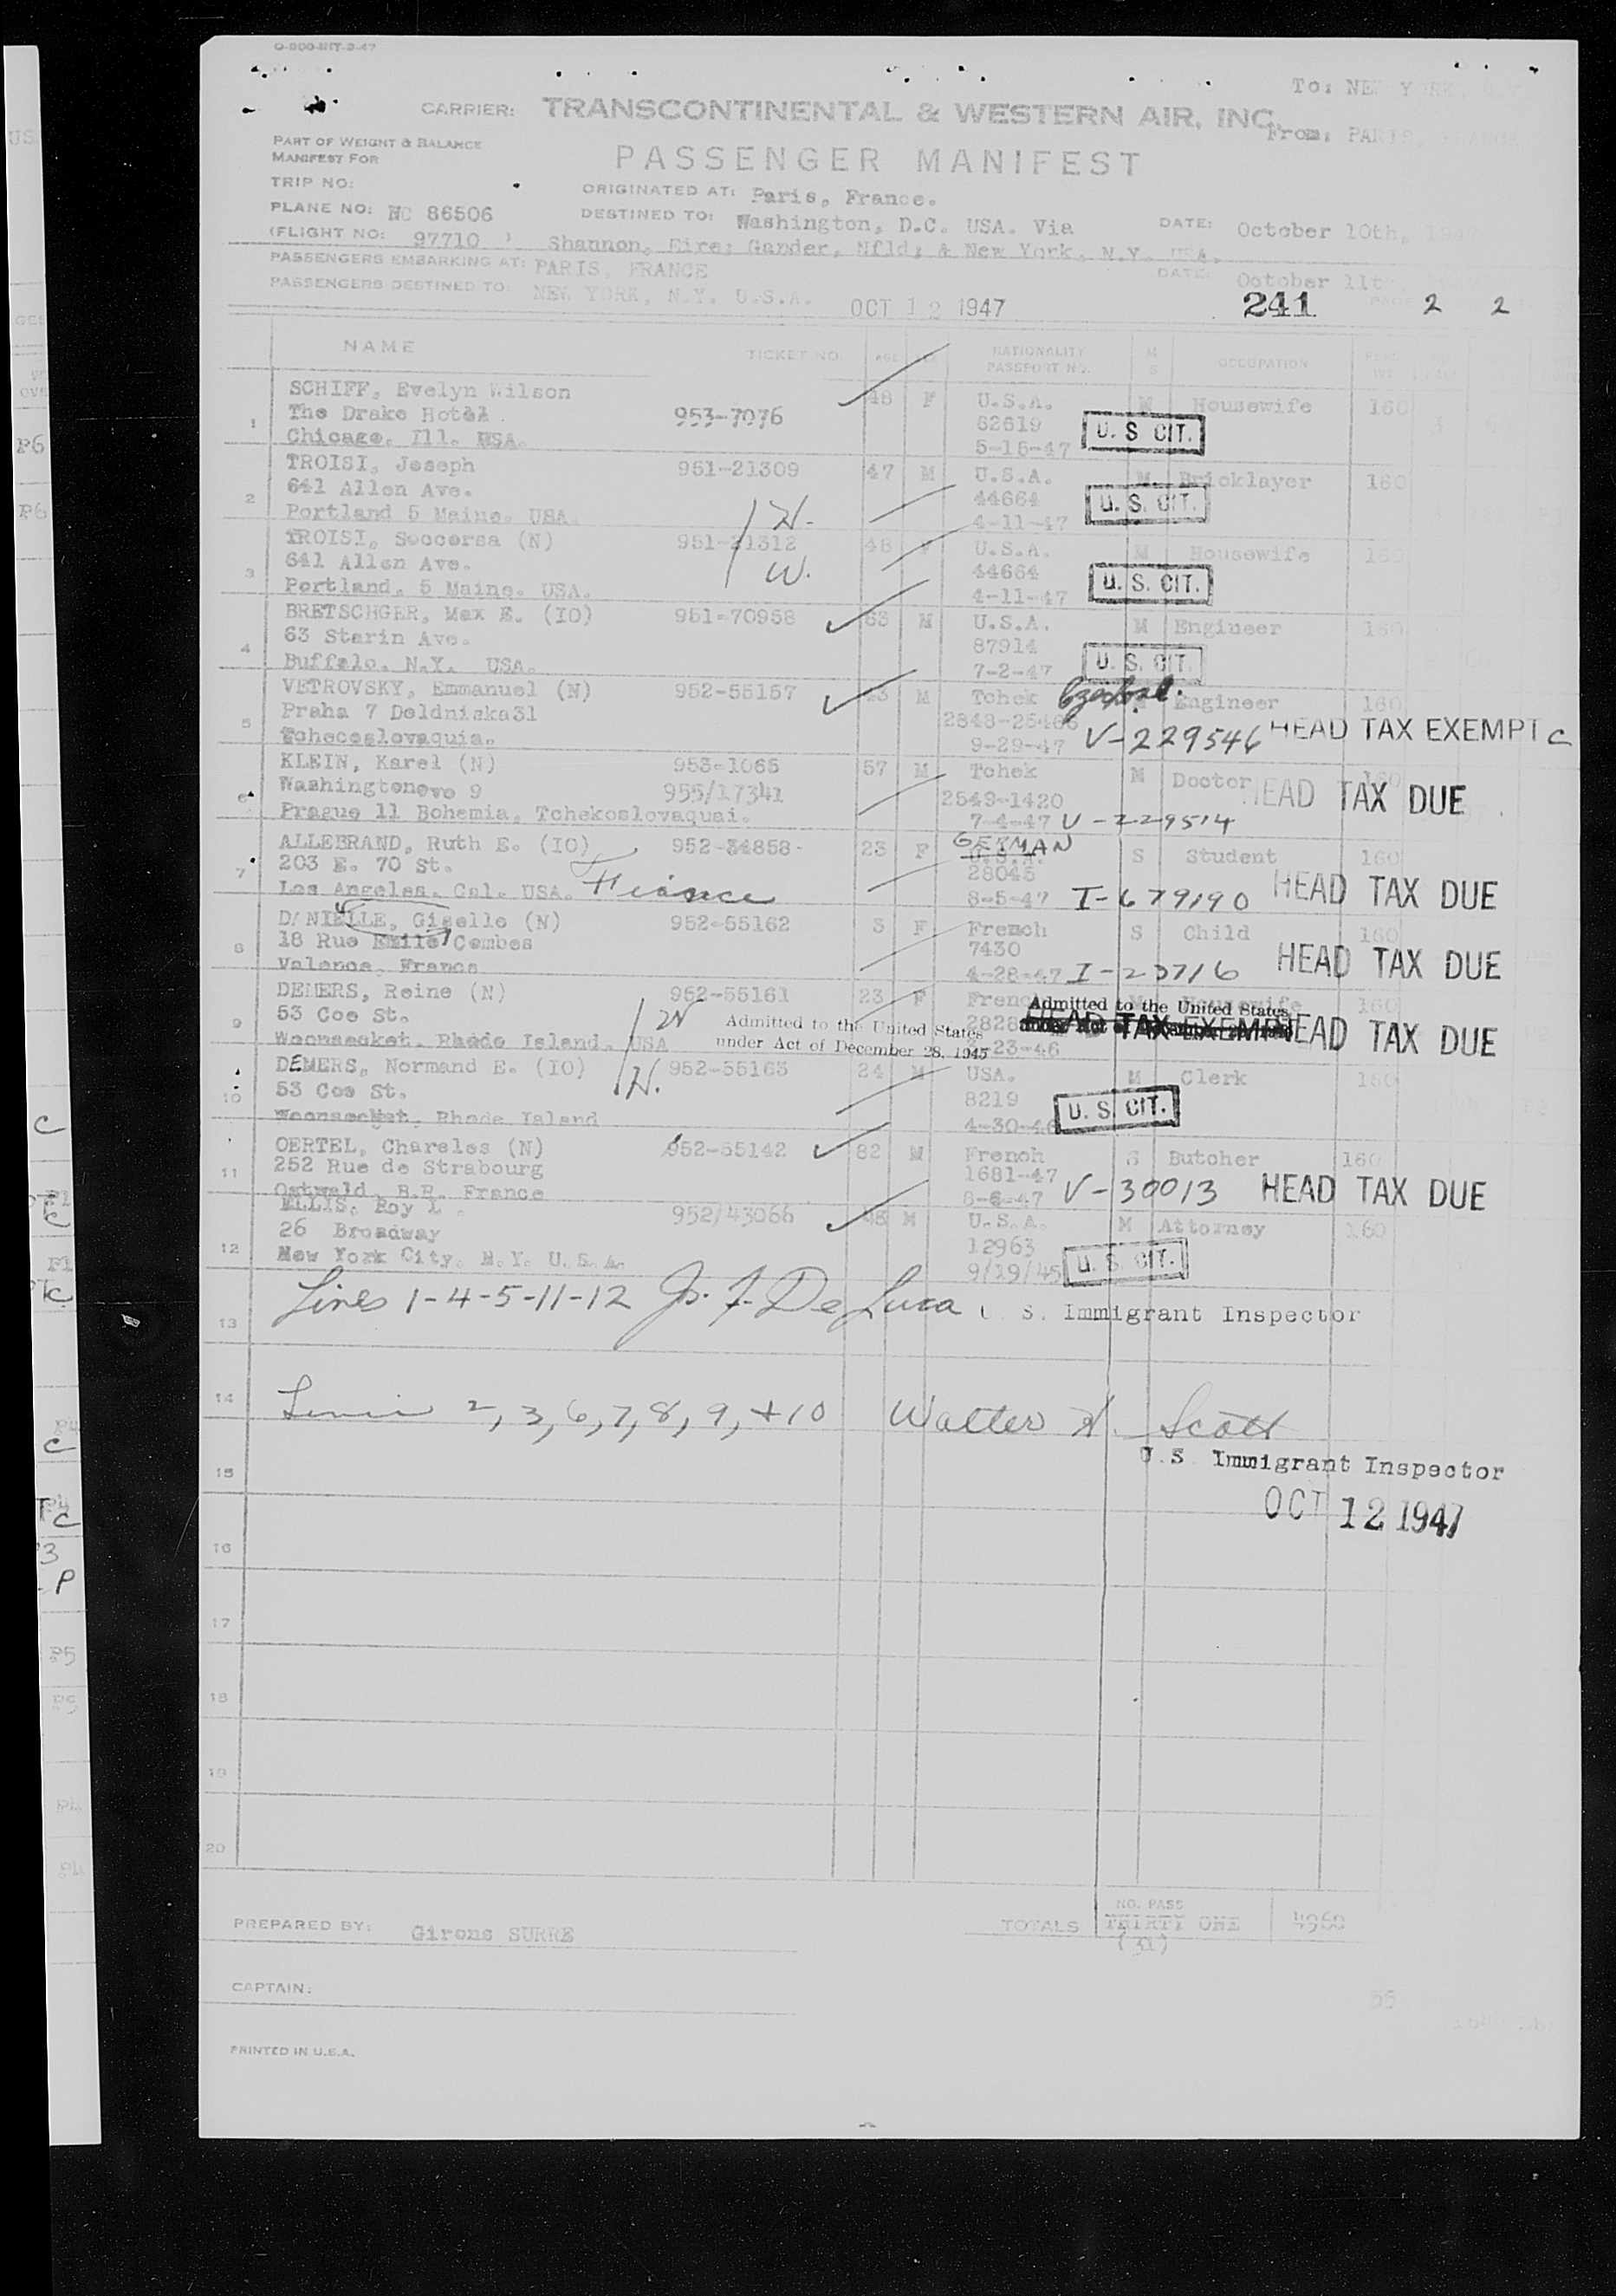 O-800-INT-3-47
To: NEW YORK, N.Y.
CARRIER: TRANSCONTINENTAL & WESTERN AIR, INC.
From: PARIS, FRANCE
PART OF WEIGHT & BALANCE
MANIFEST FOR
PASSENGER MANIFEST
TRIP NO:
ORIGINATED AT: Paris, France.
PLANE NO: NC 86506
DESTINED TO: Washington, D.C. USA. Via
DATE: October 10th, 1947
(FLIGHT NO: 97710 )
Shannon, Eire; Gander, Nfld; & New York, N.Y. USA.
PASSENGERS EMBARKING AT: PARIS, FRANCE
DATE: October 11th
PASSENGERS DESTINED TO: NEW YORK, N.Y. U.S.A.
OCT 12 1947
241
PAGE 2 2
NAME TICKET NO. AGE SEX NATIONALITY PASSPORT NO. M S OCCUPATION
1 SCHIFF, Evelyn Wilson 48 F U.S.A. W Housewife 160
The Drake Hotel 953-7076 62619 U. S CIT.
Chicago, Ill. USA. 5-15-47
2 TROISI, Joseph 951-21309 47 M U.S.A. M Bricklayer 160
641 Allen Ave. 44664 U. S. CIT.
Portland 5 Maine. USA. H. 4-11-47
3 TROISI, Soccorsa (N) 951-21312 46 F U.S.A. M Housewife 160
641 Allen Ave. W. 44664 U. S. CIT.
Portland, 5 Maine. USA. 4-11-47
4 BRETSCHGER, Max E. (IO) 951-70958 63 M U.S.A. M Engineer 160
63 Starin Ave. 87914
Buffalo, N.Y. USA. 7-2-47 U. S. CIT.
5 VETROVSKY, Emmanuel (N) 952-55157 M Tchek Engineer 160
Praha 7 Doldniska31 HEAD TAX EXEMPT C
Tchecoslovaquia. 9-29-47 V-229546
6 KLEIN, Karel (N) 953-1065 57 M Tchek M Doctor 160
Washingtonovo 9 955/17341 2549-1420 HEAD TAX DUE
Prague 11 Bohemia, Tchekoslovaquai. 7-4-47 V-229514
7 ALLEBRAND, Ruth E. (IO) 952-34858 23 F GERMAN U.S.A. S Student 160
203 E. 70 St. 28045
Los Angeles, Cal. USA. Fiance 8-5-47 I-679190 HEAD TAX DUE
8 DANIELLE, Giselle (N) 952-55162 3 F French S Child 160
18 Rue Emile Combes 7430
Valence, France 4-28-47 I-23716 HEAD TAX DUE
9 DEMERS, Reine (N) 952-55161 23 F French M Housewife 160
53 Coe St. W Admitted to the United States Admitted to the United States
Woonsocket, Rhode Island, USA under Act of December 28, 1945 HEAD TAX EXEMPT HEAD TAX DUE
10 DEMERS, Normand E. (IO) 952-55163 24 M USA. M Clerk 160
53 Coe St. H. 8219 U. S. CIT.
Woonsocket, Rhode Island 4-30-46
11 OERTEL, Chareles (N) 952-55142 82 M French S Butcher 160
252 Rue de Strabourg 1681-47
Ostwald, B.R. France 8-6-47 V-30013 HEAD TAX DUE
12 ELLIS, Roy L. 952/43066 48 M U.S.A. M Attorney 160
26 Broadway 12963
New York City, N.Y. U.S.A. 9/19/45 U. S. CIT.
13 Lines 1-4-5-11-12 Js. F. De Luca U. S. Immigrant Inspector
14 Lines 2, 3, 6, 7, 8, 9, + 10 Walter H. Scott
15 U.S. Immigrant Inspector
OCT 12 1947
16
17
18
19
20
PREPARED BY: Girons SURRE
TOTALS NO. PASS THIRTY ONE 4960
(31)
CAPTAIN:
55
PRINTED IN U.S.A.